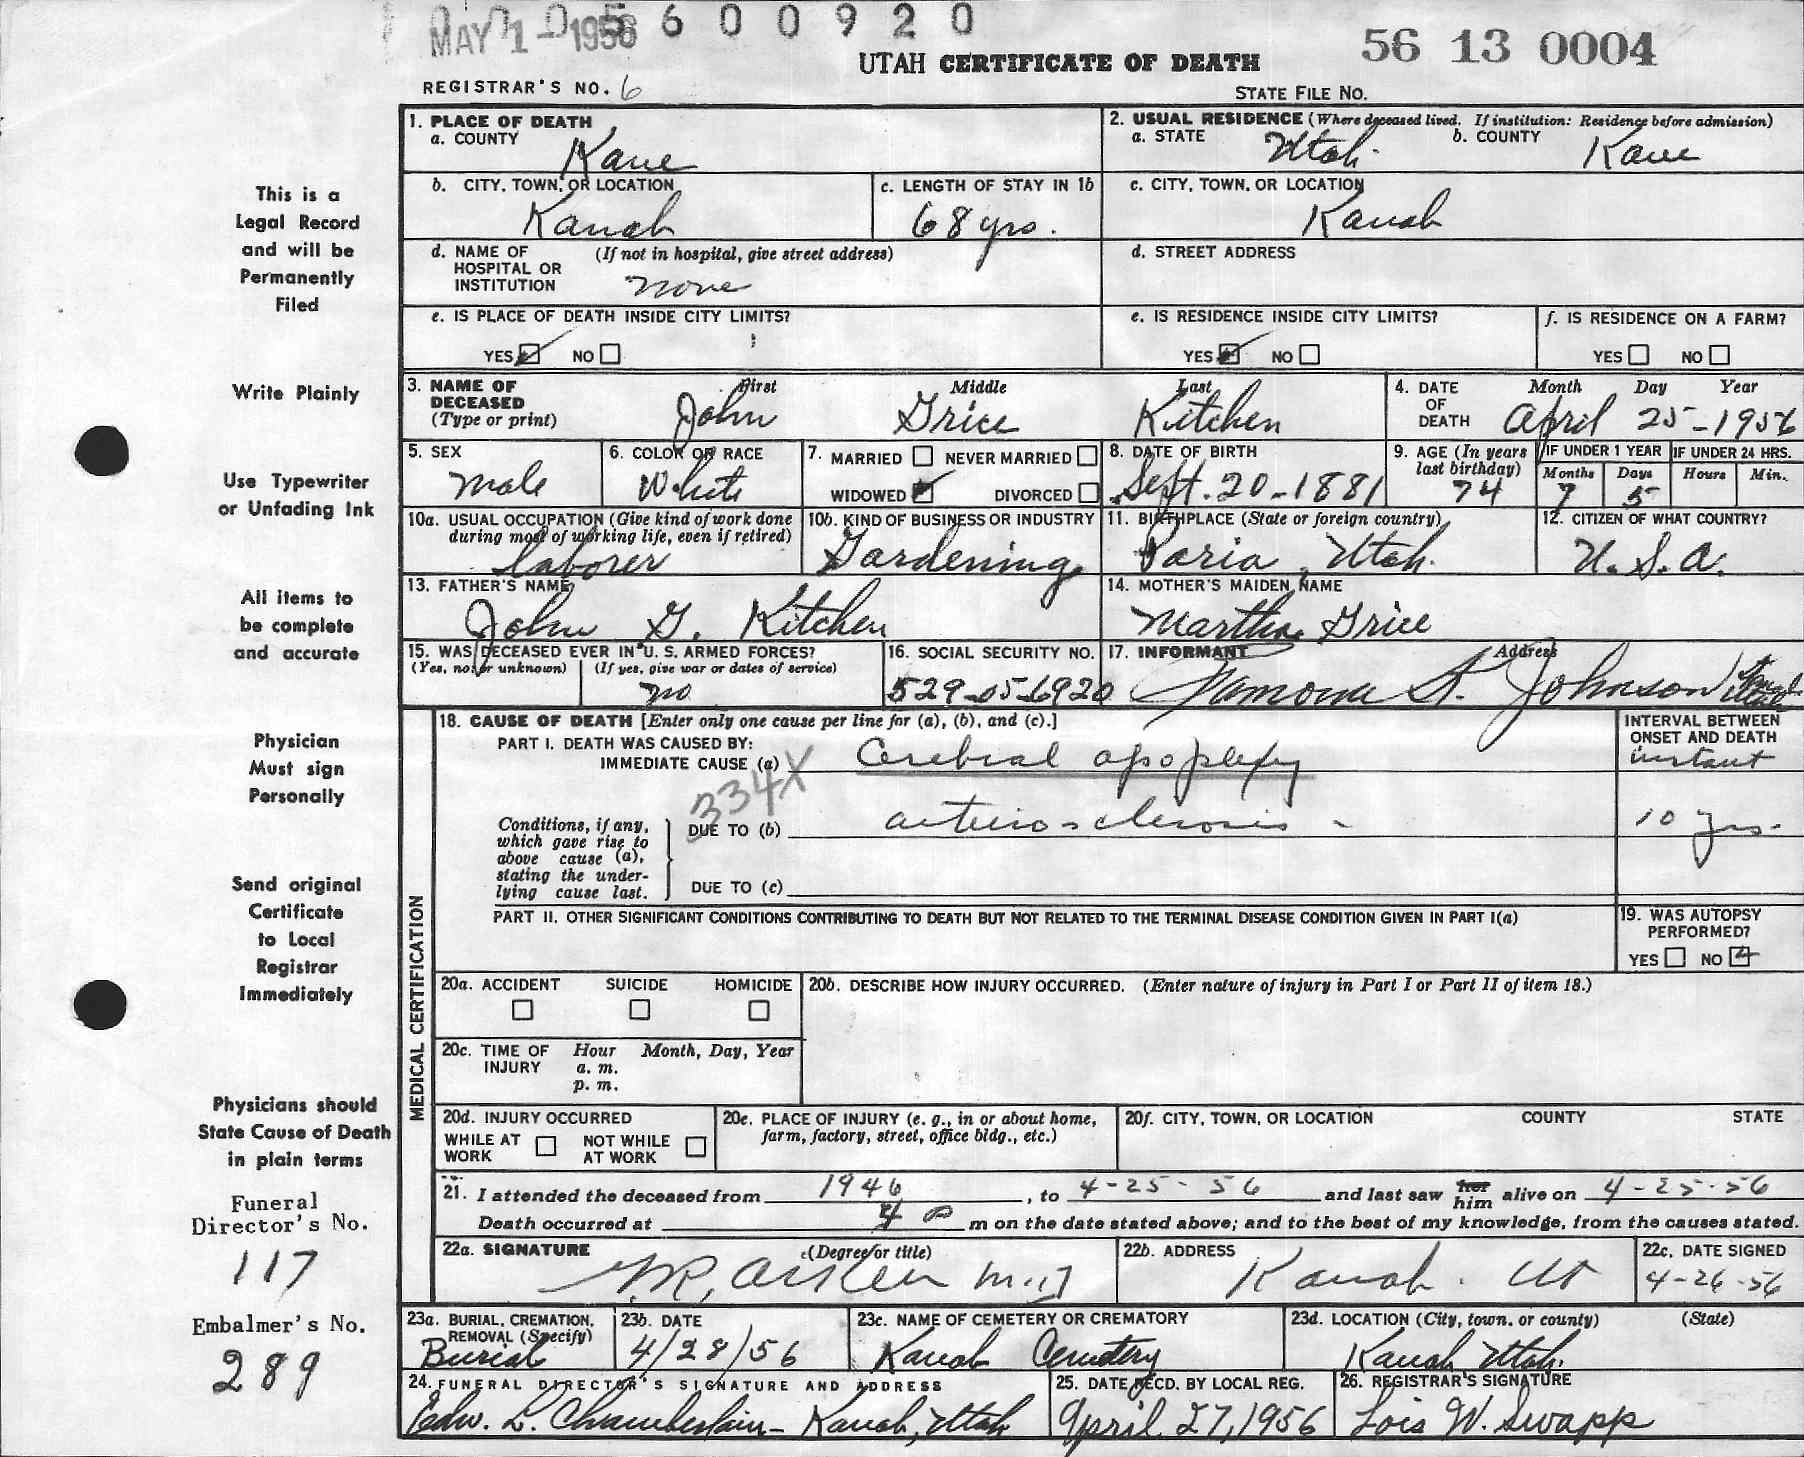 0 0 0 5 6 0 0 9 2 0
MAY 1 - 1956
56 13 0004
UTAH CERTIFICATE OF DEATH
REGISTRAR'S NO. 6
STATE FILE NO.
This is a
Legal Record
and will be
Permanently
Filed
Write Plainly
Use Typewriter
or Unfading Ink
All items to
be complete
and accurate
Physician
Must sign
Personally
Send original
Certificate
to Local
Registrar
Immediately
Physicians should
State Cause of Death
in plain terms
Funeral
Director's No.
117
Embalmer's No.
289
1. PLACE OF DEATH
a. COUNTY Kane
2. USUAL RESIDENCE (Where deceased lived. If institution: Residence before admission)
a. STATE Utah. b. COUNTY Kane
b. CITY, TOWN, OR LOCATION Kanab
c. LENGTH OF STAY IN 1b 68 yrs.
c. CITY, TOWN, OR LOCATION Kanab
d. NAME OF HOSPITAL OR INSTITUTION (If not in hospital, give street address) none
d. STREET ADDRESS
e. IS PLACE OF DEATH INSIDE CITY LIMITS?
YES NO
e. IS RESIDENCE INSIDE CITY LIMITS?
YES NO
f. IS RESIDENCE ON A FARM?
YES NO
3. NAME OF DECEASED (Type or print) First Middle Last
John Grice Kitchen
4. DATE OF DEATH Month Day Year
April 25-1956
5. SEX Male
6. COLOR OR RACE White
7. MARRIED NEVER MARRIED
WIDOWED DIVORCED
8. DATE OF BIRTH Sept. 20-1881
9. AGE (In years last birthday) 74
IF UNDER 1 YEAR Months 7 Days 5
IF UNDER 24 HRS. Hours Min.
10a. USUAL OCCUPATION (Give kind of work done during most of working life, even if retired) laborer
10b. KIND OF BUSINESS OR INDUSTRY Gardening
11. BIRTHPLACE (State or foreign country) Paria, Utah.
12. CITIZEN OF WHAT COUNTRY? U.S.A.
13. FATHER'S NAME John G. Kitchen
14. MOTHER'S MAIDEN NAME Martha Grice
15. WAS DECEASED EVER IN U. S. ARMED FORCES?
(Yes, no, or unknown) (If yes, give war or dates of service) no
16. SOCIAL SECURITY NO. 529-05-6920
17. INFORMANT Address
Ramona K. Johnson
MEDICAL CERTIFICATION
18. CAUSE OF DEATH [Enter only one cause per line for (a), (b), and (c).]
INTERVAL BETWEEN ONSET AND DEATH
PART I. DEATH WAS CAUSED BY:
IMMEDIATE CAUSE (a) Cerebral apoplexy instant
334X
Conditions, if any, which gave rise to above cause (a), stating the underlying cause last.
DUE TO (b) arterio-sclerosis - 10 yrs.
DUE TO (c)
PART II. OTHER SIGNIFICANT CONDITIONS CONTRIBUTING TO DEATH BUT NOT RELATED TO THE TERMINAL DISEASE CONDITION GIVEN IN PART I(a)
19. WAS AUTOPSY PERFORMED?
YES NO
20a. ACCIDENT SUICIDE HOMICIDE
20b. DESCRIBE HOW INJURY OCCURRED. (Enter nature of injury in Part I or Part II of item 18.)
20c. TIME OF INJURY Hour Month, Day, Year
a. m.
p. m.
20d. INJURY OCCURRED
WHILE AT WORK NOT WHILE AT WORK
20e. PLACE OF INJURY (e. g., in or about home, farm, factory, street, office bldg., etc.)
20f. CITY, TOWN, OR LOCATION COUNTY STATE
21. I attended the deceased from 1946, to 4-25-56 and last saw her him alive on 4-25-56
Death occurred at 4 P m on the date stated above; and to the best of my knowledge, from the causes stated.
22a. SIGNATURE (Degree or title) G.R. Aiken M.D
22b. ADDRESS Kanab. Ut
22c. DATE SIGNED 4-26-56
23a. BURIAL, CREMATION, REMOVAL (Specify) Burial
23b. DATE 4/28/56
23c. NAME OF CEMETERY OR CREMATORY Kanab Cemetery
23d. LOCATION (City, town, or county) (State) Kanab, Utah.
24. FUNERAL DIRECTOR'S SIGNATURE AND ADDRESS
Edw. L. Chamberlain- Kanab, Utah
25. DATE RECD. BY LOCAL REG. April 27, 1956
26. REGISTRAR'S SIGNATURE Lois W. Swapp